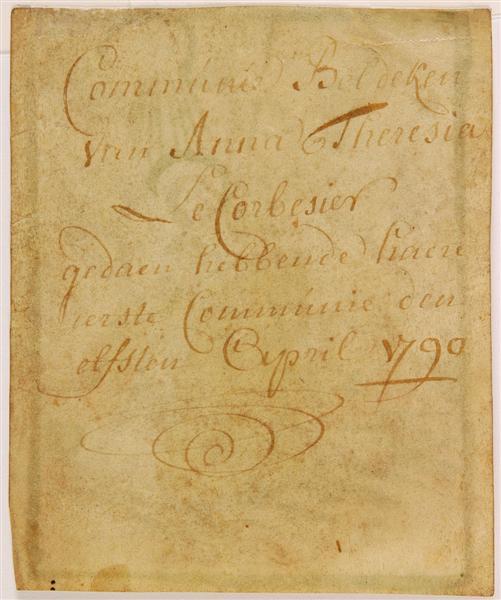 Communie Beldeken
van Anna Theresia
Le Corbesier
gedaen hebbende haere
eerste Communie den
elfsten April 1790